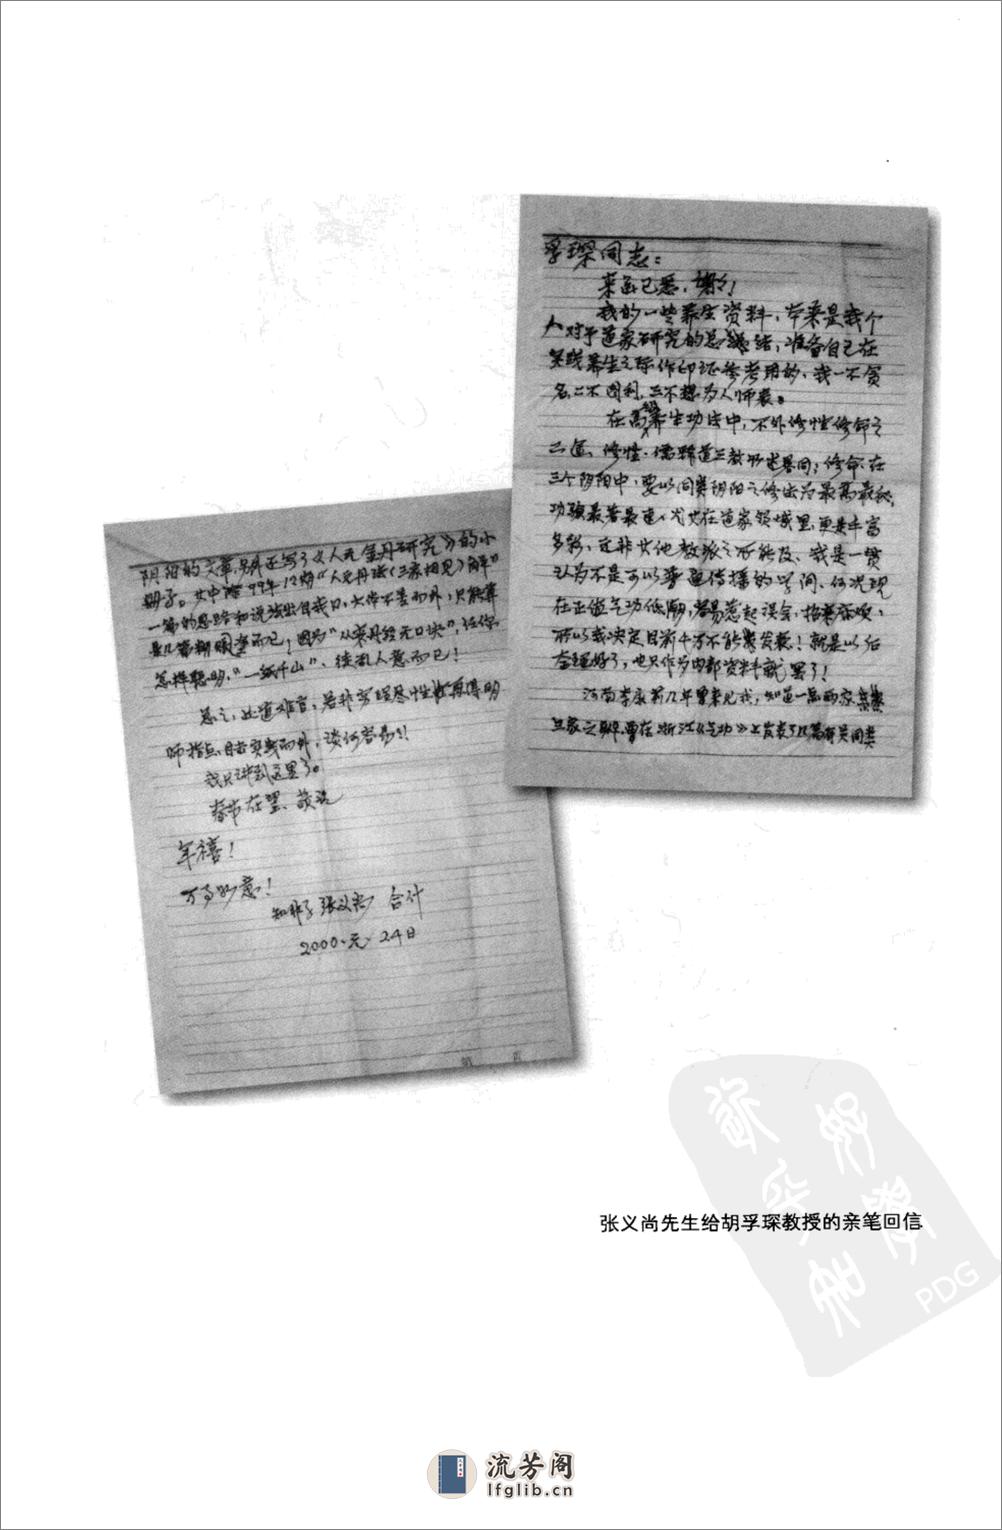 孚琛同志：
来函已悉，谢谢！
我的一些养生资料，本来是我个
人对于道家研究的总结，准备自己在
实践养生之际作印证参考用的，我一不贪
名，二不图利，三不想为人师表。
在高级养生功法中，不外修性修命之
二途，修性，儒释道三教所述略同；修命，在
三个阴阳中，要以同类阴阳之修法为最高最秘，
功验最著最速，尤其在道家领域里，更是丰富
多彩，远非其他教派之所能及，我是一贯
认为不是可以普遍传播的学问，何况现
在正值气功低潮，容易惹起误会，招来麻烦，
所以我决定目前千万不能发表！就是以后
整理好了，也只作为内部资料就罢了！
河南李康前几年曾来见我，知道一些两家
三家之事，曾在浙江《气功》上发表了几篇有关同类
阴阳的文章，另外还写了《人元金丹研究》的小
册子。其中除99年12期“人元丹法（三家相见）解”
一篇的思路和说法出自我口，大体不差而外，只能算
是几篇糊涂而已！因为“从来丹经无口诀”，任你
怎样聪明，“一纸千山”，徒乱人意而已！
总之，此道难言，若非穷理尽性，再得明
师指点，自去实践而外，谈何容易！！
我只讲到这里了。
春节在望，敬祝
年禧！
万事如意！
知非子张义尚 合计
2000、元、24日
第 页
张义尚先生给胡孚琛教授的亲笔回信
PDG
流芳阁
lfglib.cn